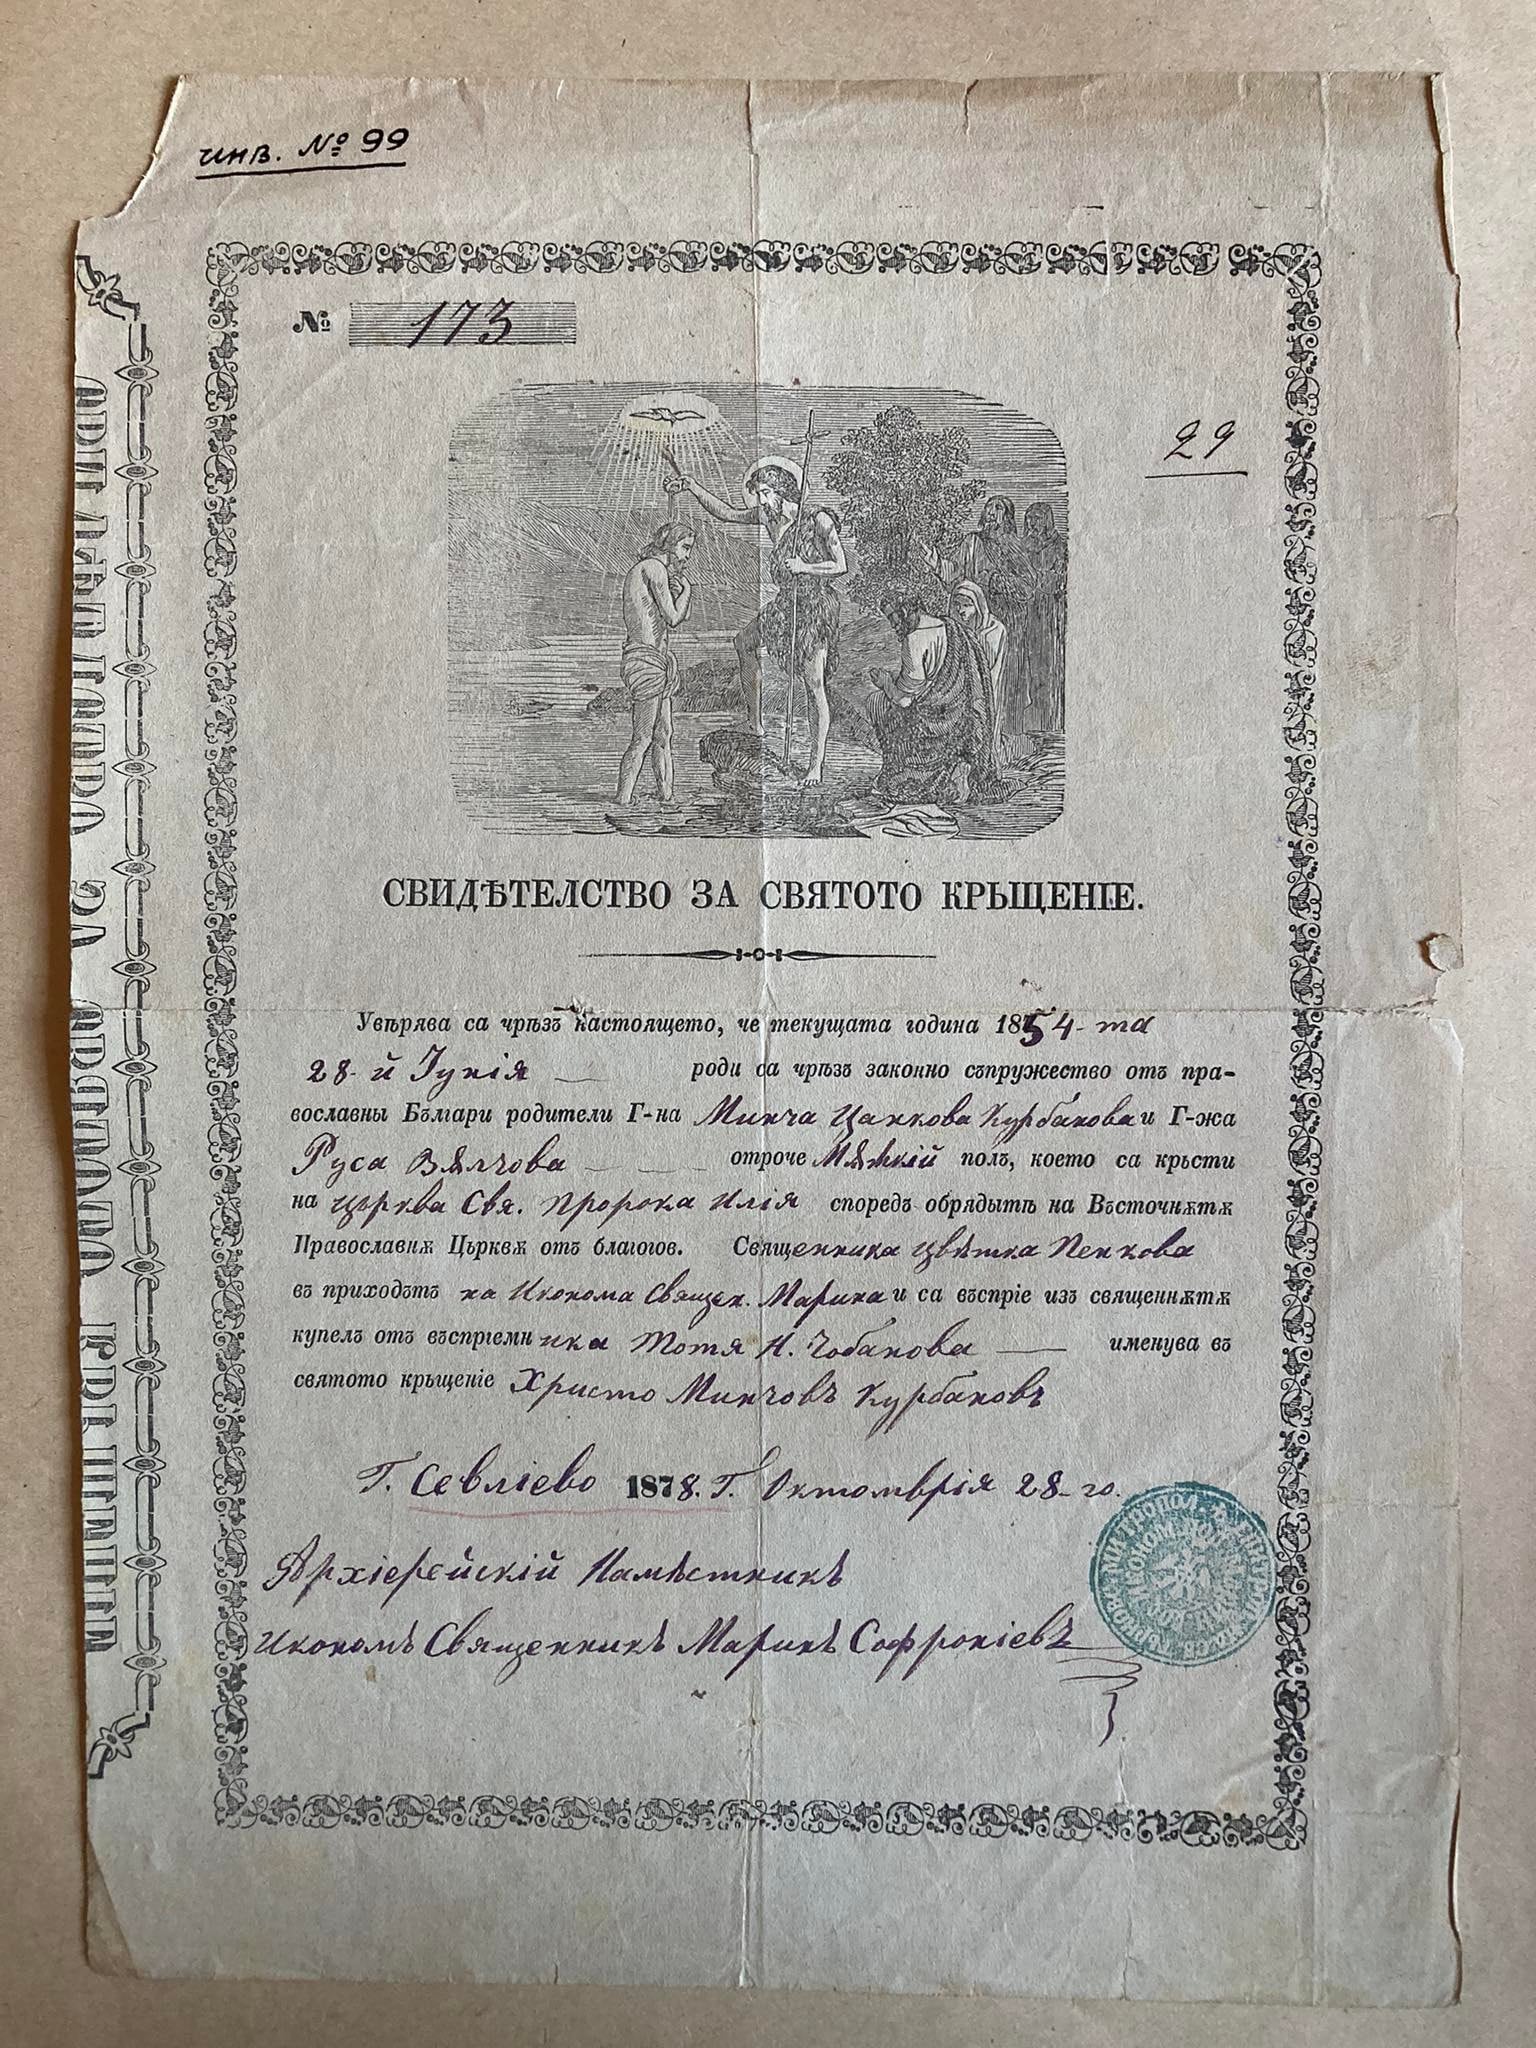 инв. № 99
№ 173
29
СВИДѢТЕЛСТВО ЗА СВЯТОТО КРЬЩЕНІЕ.
Увѣрява са чрѣзъ настоящето, че текущата година 1854-та
28-й Іунія роди са чрѣзъ законно съпружество отъ пра-
вославны Бѫлгари родители Г-на Минча Цанкова Курбанова и Г-жа
Руса Вѫлчова отроче Мѫжкій полъ, което са крьсти
на църква Свя. Пророка Илія споредъ обрядытѣ на Въсточнѫтѫ
Православнѫ Църквѫ отъ благогов. Священника Цвѣтка Пенкова
въ приходътъ на Иконома Священ. Марина и са въспріе изъ священнѫтѫ
купелъ отъ въспріемника Тотя Н. Чобанова именува въ
святото крьщеніе Христо Минчовъ Курбановъ
Г. Севліево 1878. Г. Октомврія 28-го.
Архіерейскій Намѣстникъ
Икономъ Священникъ Маринъ Софроніевъ